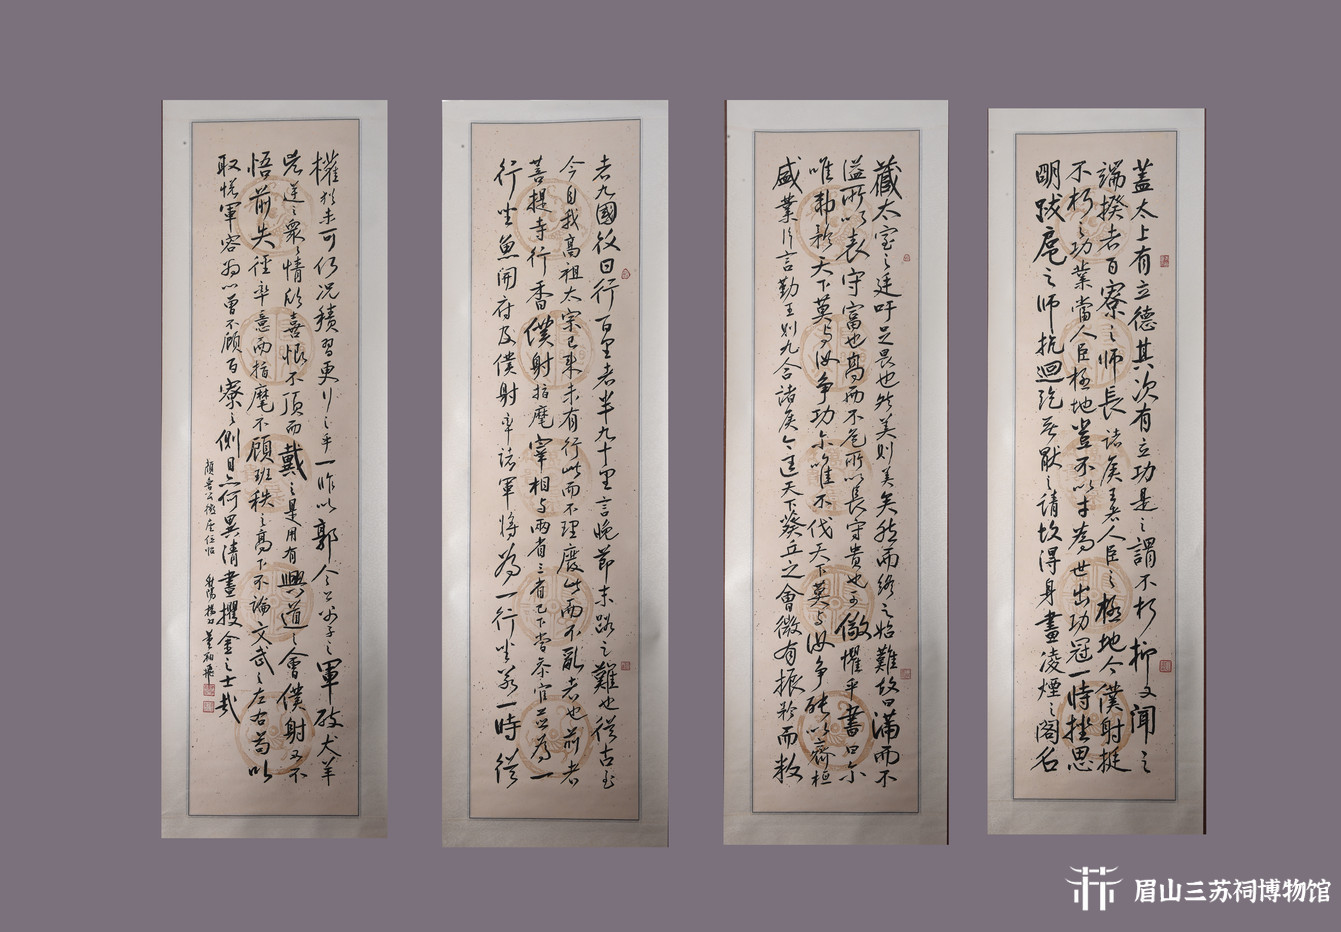 蓋太上有立德其次有立功是之謂不朽抑又聞之
端揆者百寮之師長諸侯者人臣之極地今僕射挺
不朽之功業當人臣極地豈不以才為世出功冠一時挫思
明跋扈之師抗迴紇無厭之請故得身畫凌煙之閣名
藏太室之廷吁足畏也然美則美矣然而終之始難故曰滿而不
溢所以長守富也高而不危所以長守貴也可儆懼乎書曰尔
唯弗矜天下莫与汝争功尔唯不伐天下莫与汝争能以齊桓
盛業片言勤王則九合諸侯一匡天下葵丘之會微有振矜而叛
者九國故曰行百里者半九十里言晚節末路之難也從古至
今自我高祖太宗已來未有行此而不理廢此而不亂者也前者
菩提寺行香僕射指麾宰相与兩省三省已下常參官並為一
行坐魚開府及僕射率諸軍將為一行坐若一時從
權猶未可何況積習更行之乎一昨以郭令公父子之軍破犬羊
兇逆之眾眾情欣喜恨不頂而戴之是用有興道之會僕射又不
悟前失徑率意而指麾不顧班秩之高下不論文武之左右苟以
取悅軍容為心曾不顧百寮之側目亦何異清晝攫金之士哉
顏魯公
眉山三苏祠博物馆